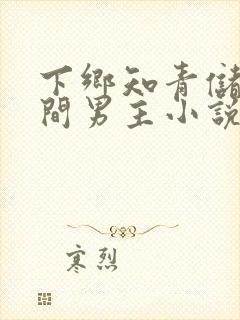 下鄉知青儲
間男主小說
寒烈